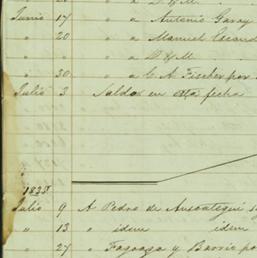 " " D & M.
Junio 17 " a Antonio Garay
" 20 " a Manuel Escand
" " " a D & M.
" 30 " a C. A. Fischer por
Julio 3 Saldo en esta fecha
1838
Julio 9 A Pedro de Ansoategui s
" 13 " idem idem
" 27 " Fagoaga y Barrio po